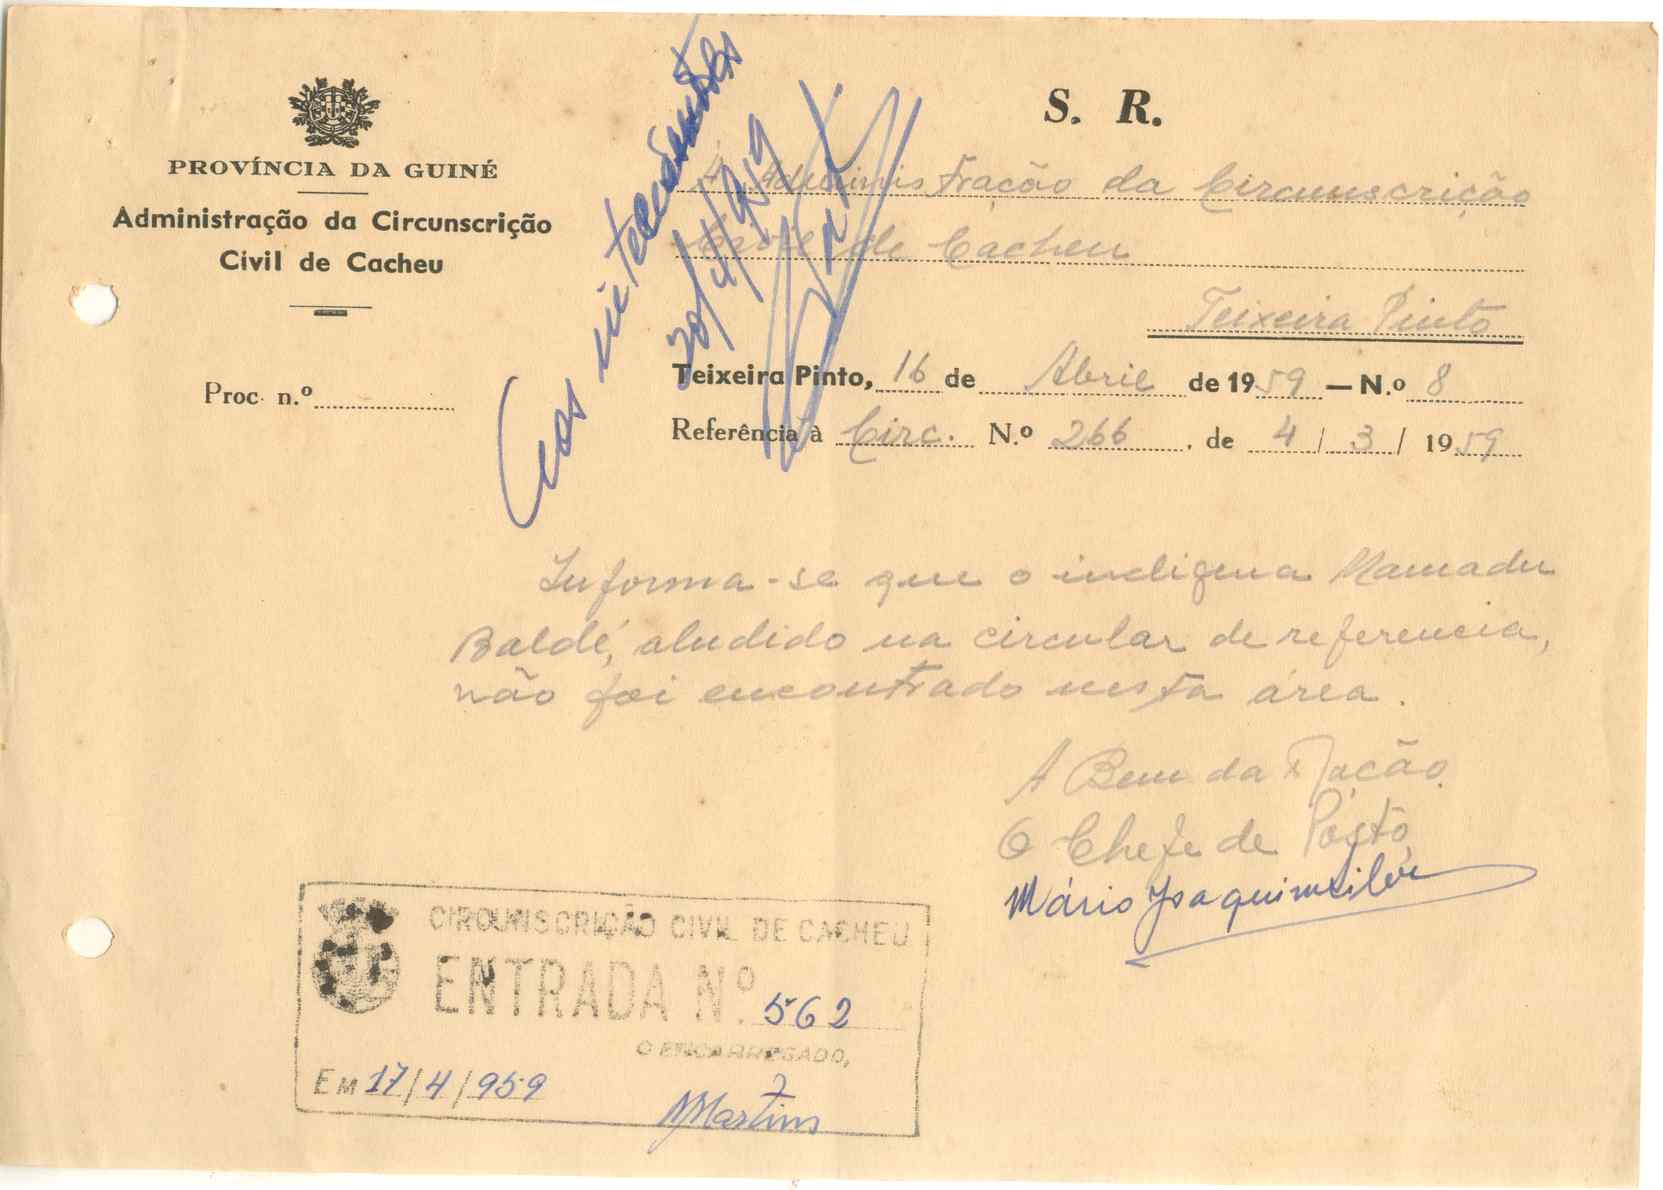 PROVÍNCIA DA GUINÉ
Administração da Circunscrição
Civil de Cacheu
Proc. n.º
S. R.
À Administração da Circunscrição
Civil de Cacheu
Teixeira Pinto
Teixeira Pinto, 16 de Abril de 1959 — N.º 8
Referência à Circ. N.º 266, de 4/3/1959
20/4/959
Informa-se que o indigena Mamadu
Baldé, aludido na circular de referencia,
não foi encontrado nesta área.
A Bem da Nação
O Chefe de Pôsto,
Mário Joaquim Silva
CIRCUNSCRIÇÃO CIVIL DE CACHEU
ENTRADA N.º 562
O ENCARREGADO,
EM 17/4/959
MMartins